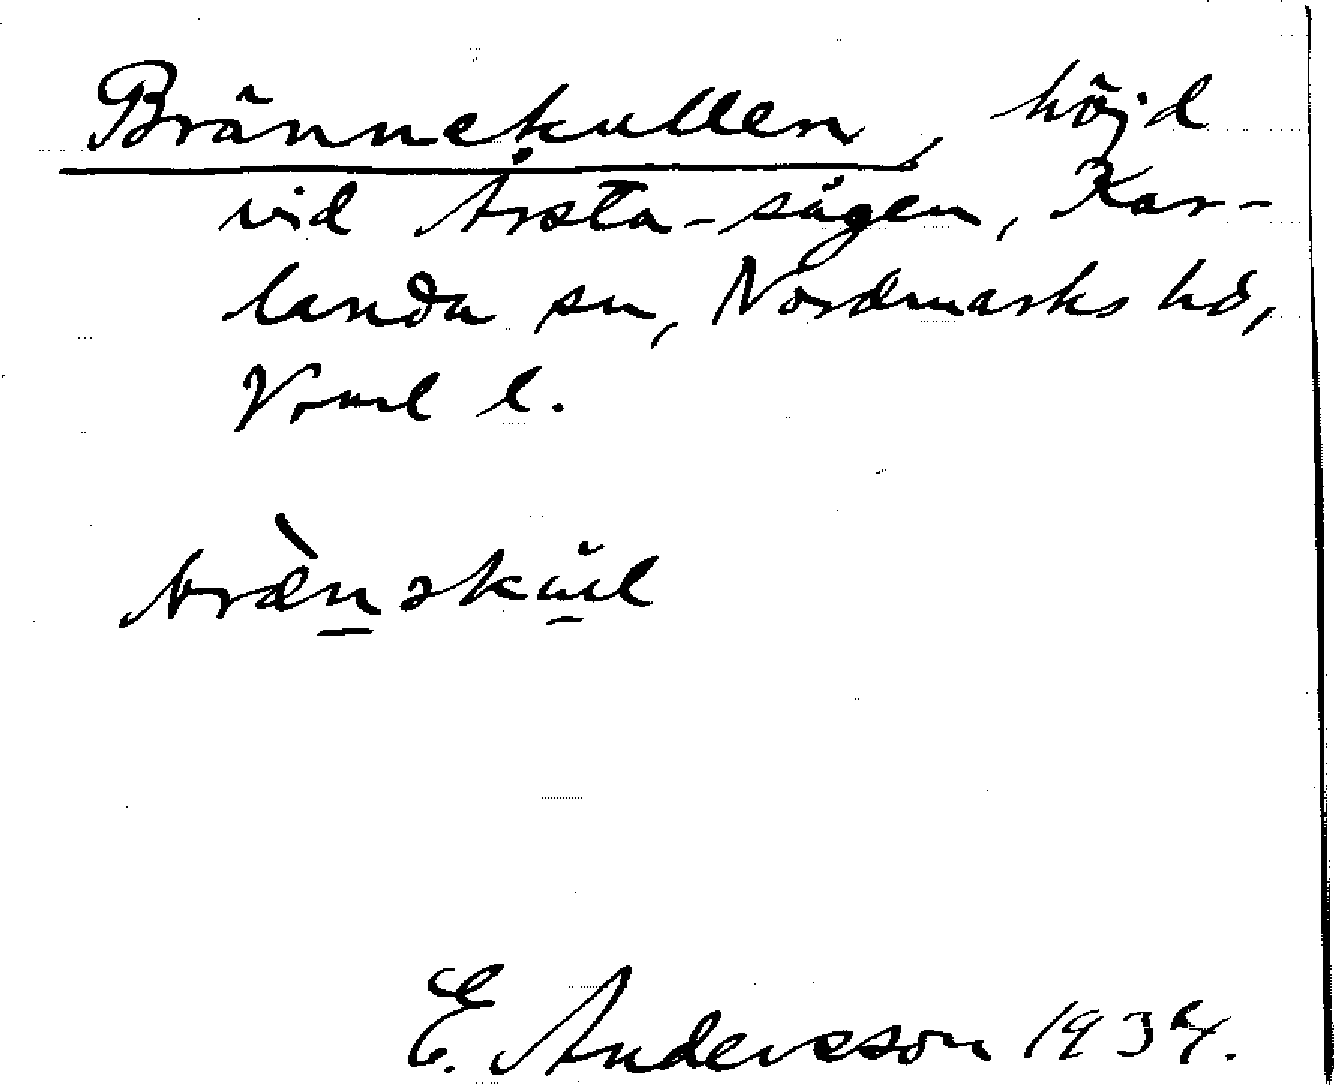 Brännekullen, höjd
vid Årsta-sågen, Kar-
landa sn, Nordmarks hd,
Vrml l.
E. Andersson 1934.